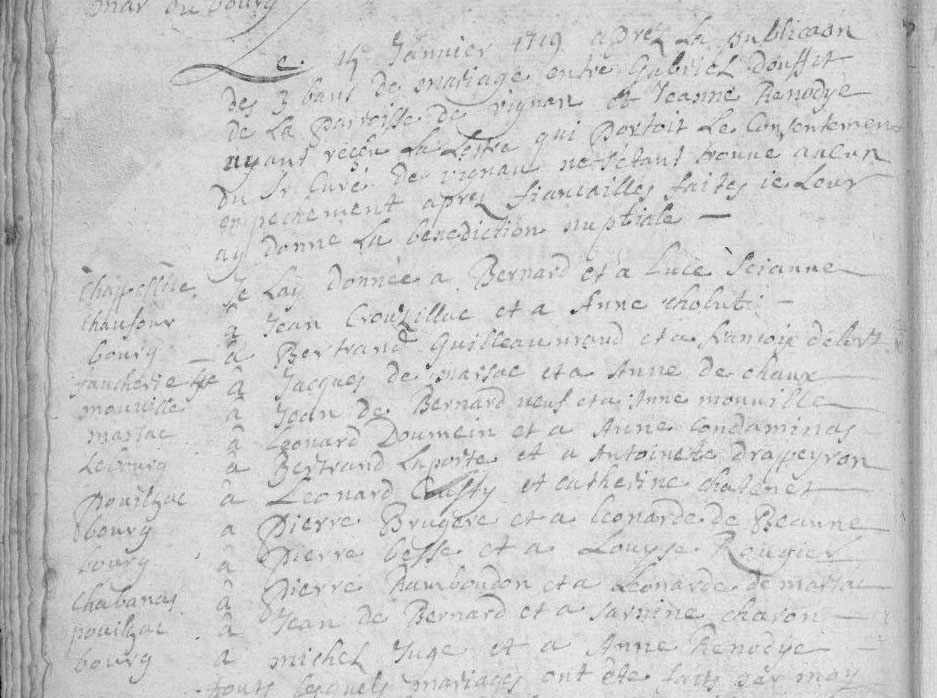 mar du bourg
Le 14 Janvier 1719 aprez La publicaon
des 3 bans de mariage entre Gabriel douffit
de La parroisse de vignan et Jeanne Renodye
ayant reçeu La Lettre qui portoit Le Consentemen
du Sr Curé de vignan ne s'etant trouve aucun
empechement aprez fiancailles faites ie Leur
ay donne La benediction nuptiale —
Je Lay donnée a Bernard et a Luce Seianne
chaufour a Jean Crouzillac et a Anne cholut —
bourg — à Bertrand Guilleaumaud et a
à Jacques de marsac et a Anne de chaux
mauville à Jean de Bernard neuf et a Anne monville
marsac à Leonard Doumein et a Anne Condaminas
Le bourg à Bertrand Laporte et a Antoinete drappeyron
pouilzac à Leonard et catherine chatenet
bourg a pierre Brugere et a Leonarde de Beaune
bourg à pierre besse et a Louyse Rougier
Chabanas à pierre Ramboudon et a Leonarde de marsac
pouilzac à Jean de Bernard et a charon —
bourg a michel Juge et a Anne Renodye —
touts lesquels mariages ont ete faits par moy